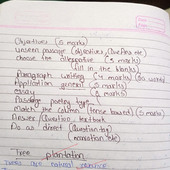 Objectives (5 marks)
unseen passage (objectives,
choose the alternative (5 marks)
fill in the blanks)
Paragraph writing (5 marks)
Application general (5 marks)
essay (5 marks)
Passage poetry type
Match the column (tense based) (5 marks)
Answer/Question textbook
Do as direct (Question tag)
Tree plantation